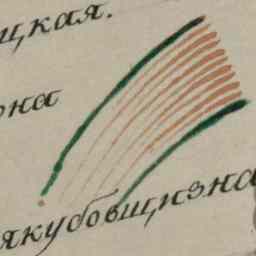 цкая.
она
якубовщизна